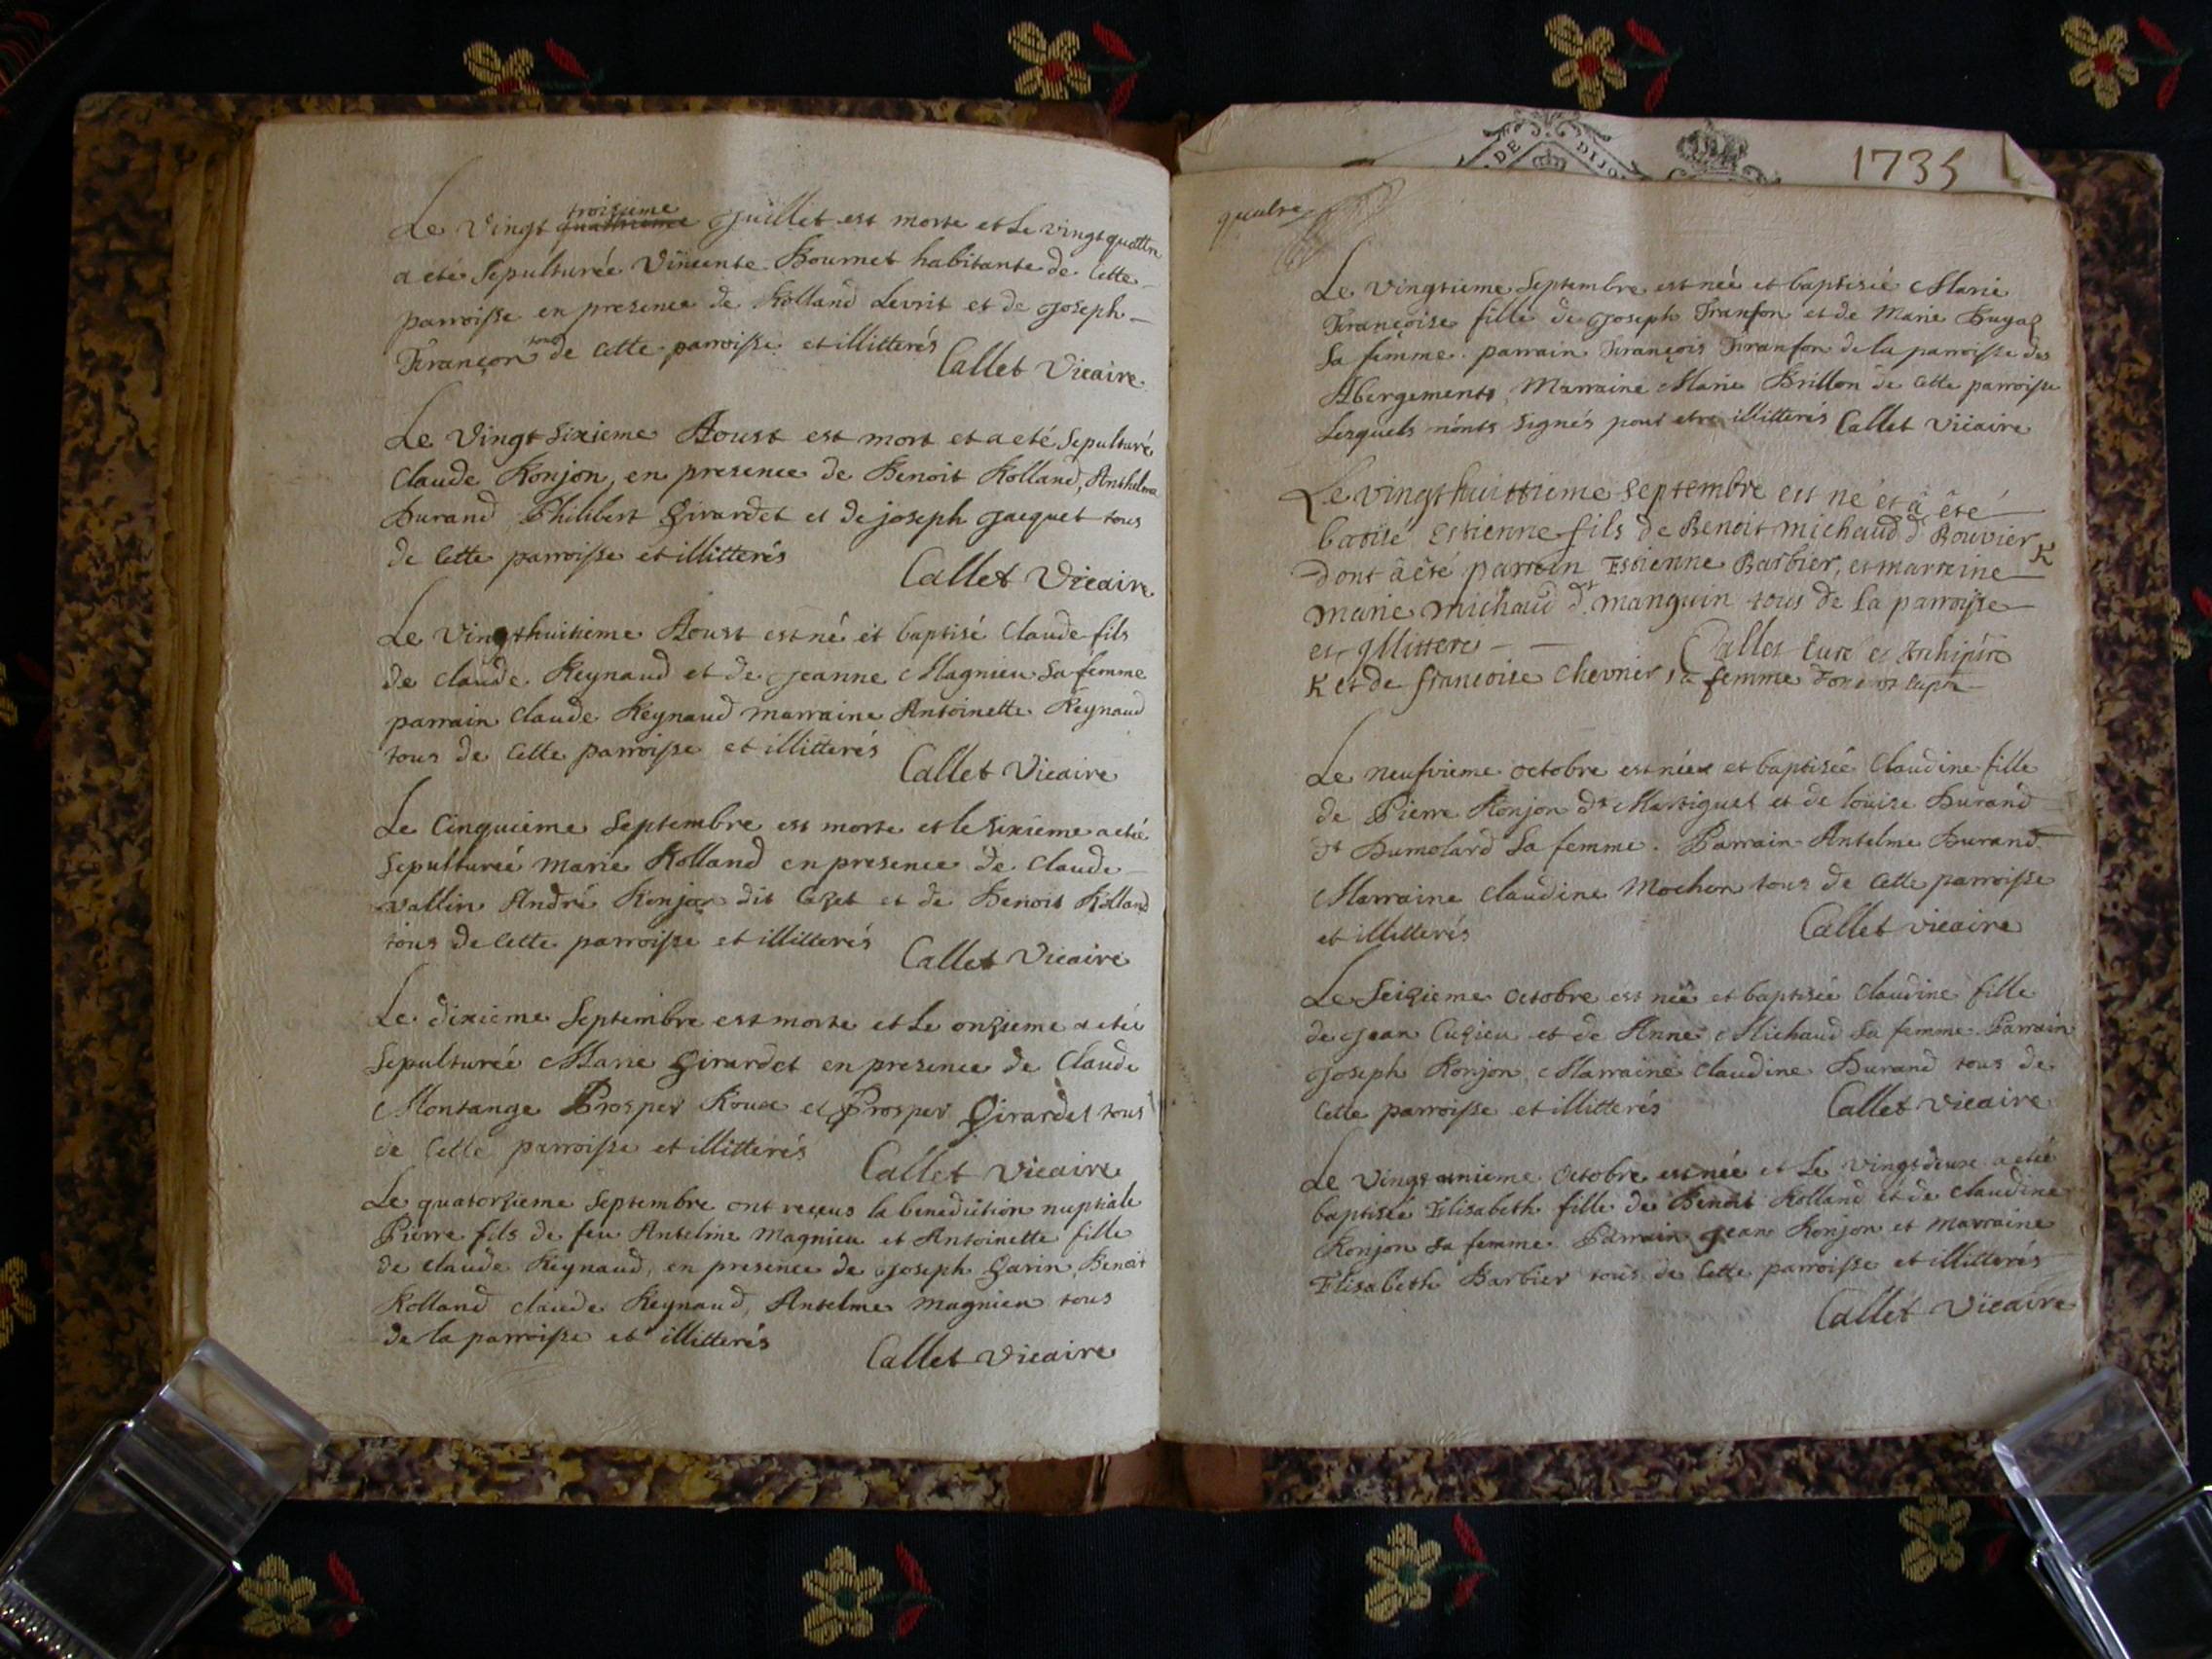 Le Vingt troisieme Juillet est morte et Le vingtquattre
a eté Sepulturée Vincente Bournet habitante de Cette
parroisse en presence de Rolland Levrit et de Joseph
Françon tous de Cette parroisse et illitterés
Callet Vicaire
Le Vingt Sixieme Aoust est mort et a eté Sepulturé
Claude Ronjon, en presence de Benoit Rolland, Anthelme
Durand Philibert Girardet et de joseph Jacquet tous
de Cette parroisse et illitterés
Callet Vicaire
Le Vingthuitieme Aoust est né et baptisé Claude fils
de Claude Reynaud et de Jeanne Magnieu Sa femme
parrain Claude Reynaud marraine Antoinette Reynaud
tous de Cette parroisse et illitterés
Callet Vicaire
Le Cinquieme Septembre est morte et le Sixieme a eté
Sepulturée Marie Rolland en presence de Claude
Vallin André Ronjon dit et de Benoit Rolland
tous de Cette parroisse et illitterés
Callet Vicaire
Le dixieme Septembre est morte et Le onzieme a eté
Sepulturée Marie Girardet en presence de Claude
Montange Prosper Roux et Prosper Girardet tous
de Cette parroisse et illitterés
Callet Vicaire
Le quatorzieme Septembre ont reçeus la benediction nuptiale
Pierre fils de feu Antelme Magnieu et Antoinette fille
de Claude Reynaud, en presence de Joseph Garin, Benoit
Rolland Claude Reynaud, Antelme Magnieu tous
de la parroisse et illitterés
Callet Vicaire
DE DIJO
1735
quatre
Le Vingtieme Septembre est née et baptisée Marie
Françoise fille de Joseph Franson et de Marie
Sa femme. parrain François Franson de la parroisse des
Abergements, Marraine Marie Brillon de Cette parroisse
Lesquels n'onts Signés pour etre illitterés Callet Vicaire
Le vingthuittieme Septembre est né et à êté
batisé Estienne fils de Benoit michaud dt Bouvier K
dont à êté parrein Estienne Barbier, et marreine
marie michaud dt manguin tous de la parroisse
et Illittere Callet Curé et Archiprè
K et de francoise Chevrier sa femme
Le neufvieme octobre est née et baptisée Claudine fille
de Pierre Ronjon dt Martiguet et de louise Durand
dt Dumolard Sa femme. Parrain Antelme Durand
Marraine Claudine Mochon tous de Cette parroisse
et illitterés Callet vicaire
Le Seizieme octobre est née et baptisée Claudine fille
de Jean Cuzieu et de Anne Michaud Sa femme. Parrain
Joseph Ronjon, Marraine Claudine Durand tous de
Cette parroisse et illitterés Callet Vicaire
Le Vingt unieme octobre est née et Le Vingtdeux a eté
baptisée Elisabeth fille de Benoit Rolland et de Claudine
Ronjon Sa femme Parrain Jean Ronjon et Marraine
Elisabeth Barbier tous de Cette parroisse et illitterés
Callet Vicaire